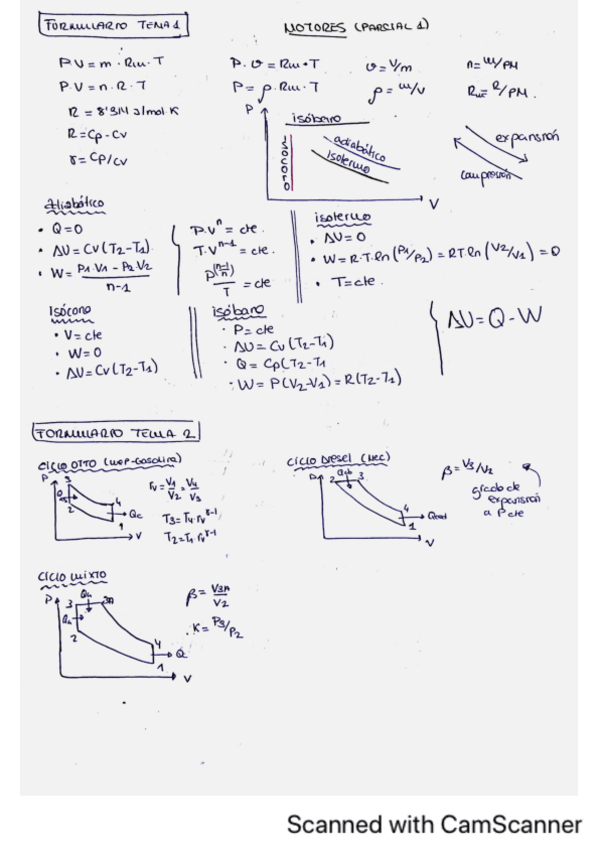 FORMULARIO TEMA 1
MOTORES (PARCIAL 1)
P.V = m . Rm . T
P.V = n . R . T
R = 8'314 J/mol.K
R = Cp - Cv
γ = Cp/Cv
P . υ = Rm . T
P = ρ . Rm . T
υ = V/m
ρ = m/V
n = m/PM
Rm = R/PM.
P
isóbaro
ISOCORO
adiabático
isotermo
V
expansión
compresión
Adiabático
• Q = 0
• ΔU = Cv (T2 - T1)
• W = P1.V1 - P2.V2 / n-1
P.V^n = cte.
T.V^n-1 = cte.
P^(n-1/n) / T = cte
isotermo
• ΔU = 0
• W = R.T.ln (P1/P2) = RT.ln (V2/V1) = Q
• T = cte.
Isócoro
• V = cte
• W = 0
• ΔU = Cv (T2 - T1)
isóbaro
• P = cte
• ΔU = Cv (T2 - T1)
• Q = Cp (T2 - T1
• W = P (V2 - V1) = R (T2 - T1)
ΔU = Q - W
FORMULARIO TEMA 2
CICLO OTTO (MEP-Gasolina)
P
3
2
4
1
Qc
V
rv = V1/V2 = V4/V3
T3 = T4 . rv^γ-1
T2 = T1 . rv^γ-1
CICLO DIESEL (MEC)
P
2
3
4
1
V
β = V3/V2
grado de
expansión
a P cte
CICLO MIXTO
P
Qa
3
3A
Qa
2
4
1
Q
V
β = V3A/V2
K = P3/P2
Scanned with CamScanner